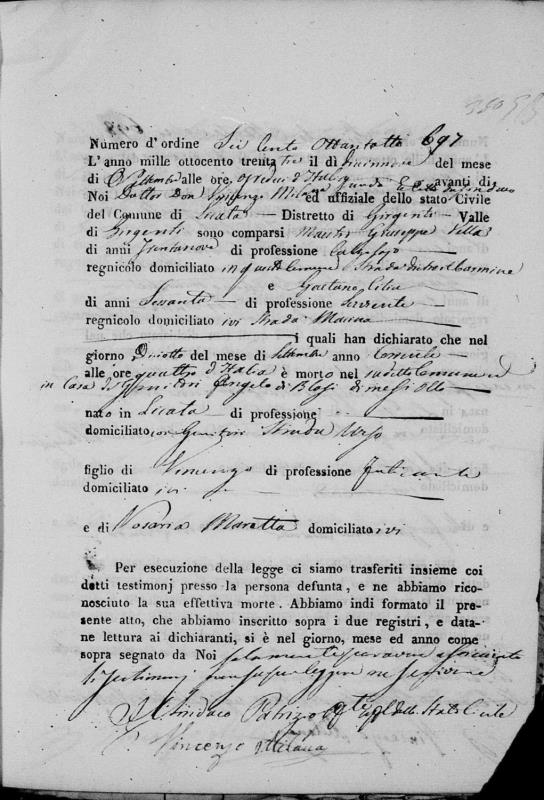 Numero d'ordine Sei Cento Ottantotto 697
L'anno mille ottocento trenta tre il dì diecinnove del mese
di Settembre alle ore avanti di
Noi Dottor Don Vincenzo Milana ed uffiziale dello stato Civile
del Comune di Licata — Distretto di Girgenti — Valle
di Girgenti sono comparsi Mastro Giuseppe Villa
di anni Trentanove di professione
regnicolo domiciliato in questo Comune Strada
e Gaetano
di anni Sessanta — di professione Servente —
regnicolo domiciliato ivi Strada Marina
i quali han dichiarato che nel
giorno Dieciotto del mese di Settembre anno Corrente —
alle ore quattro d'Italia è morto nel sudetto Comune ed
in Casa di Genitori Angelo di Blasi di mesi Otto
nato in Licata — di professione —
domiciliato con Genitori Strada Urso
figlio di Vincenzo di professione
domiciliato ivi —
e di Rosaria Maratta domiciliato ivi
Per esecuzione della legge ci siamo trasferiti insieme coi
detti testimonj presso la persona defunta, e ne abbiamo rico-
nosciuto la sua effettiva morte. Abbiamo indi formato il pre-
sente atto, che abbiamo inscritto sopra i due registri, e data-
ne lettura ai dichiaranti, si è nel giorno, mese ed anno come
sopra segnato da Noi solamente
li testimonj non saper leggere ne scrivere
Il Sindaco Patrizio ed uffle dello Stato Civile
Vincenzo Milana